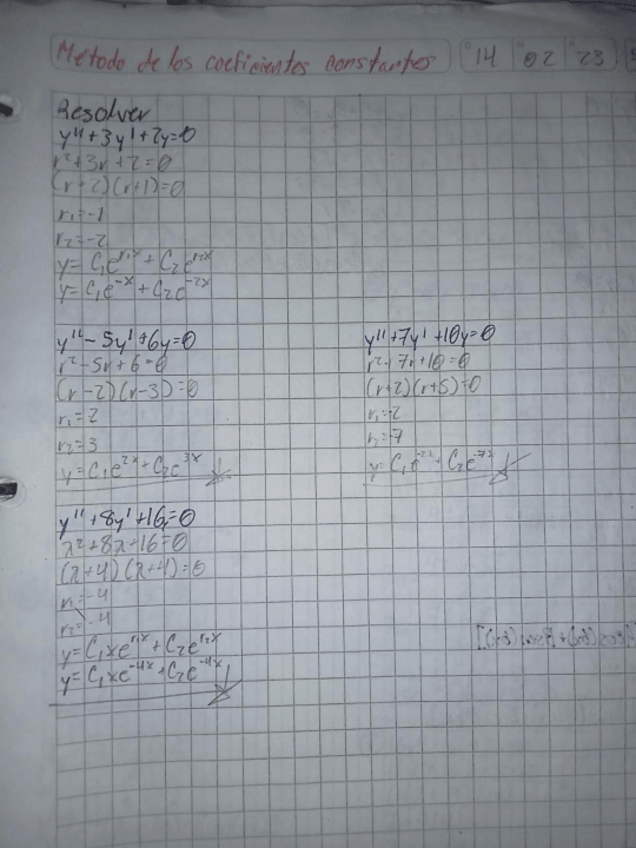 Metodo de los coeficientes constantes 14 02 23
Resolver
y''+3y'+2y=0
r²+3r+2=0
(r+2)(r+1)=0
r₁=-1
r₂=-2
y= C₁e^r₁x + C₂e^r₂x
y= C₁e^-x + C₂e^-2x
y''-5y'+6y=0
r²-5r+6=0
(r-2)(r-3)=0
r₁=2
r₂=3
y=C₁e^2x+C₂e^3x
y''+7y'+10y=0
r²+7r+10=0
(r+2)(r+5)=0
r₁=-2
r₂=-7
y=C₁e^-2x+C₂e^-7x
y''+8y'+16=0
λ²+8λ+16=0
(λ+4)(λ+4)=0
r₁=-4
r₂=-4
y=C₁xe^r₁x+C₂e^r₂x
y=C₁xe^-4x+C₂e^-4x